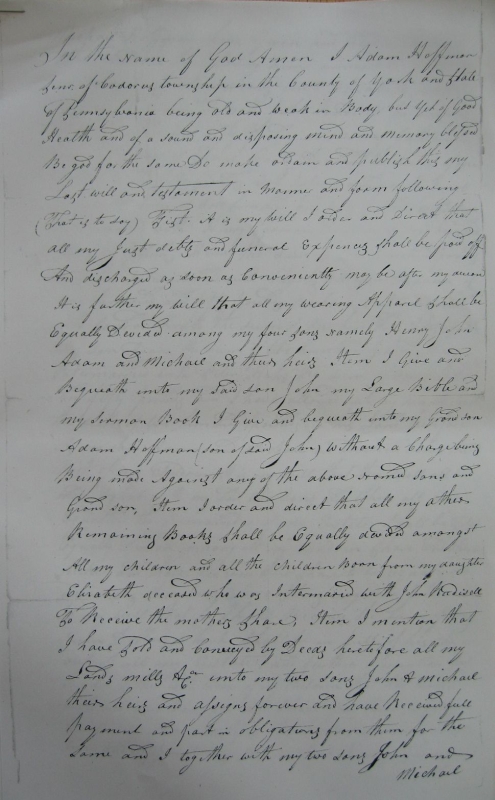 In the Name of God Amen I Adam Hoffman
Senr. of Codorus township in the County of York and State
of Pennsylvania being old and weak in Body, but yet of Good
Health and of a sound and disposing mind and memory blessed
Be god for the same Do make ordain and publish this my
Last will and testament in Manner and form following
(That is to Say) First. It is my will I order and Direct that
all my Just debts and funeral Expences shall be paid off
And discharged as soon as Conveniently may be after my
It is further my will that all my wearing Apparel shall be
Equally Devided among my four sons namely Henry John
Adam and Michael and their heirs Item I Give and
Bequeath unto my Said son John my Large Bible and
my Sermon Book I Give and bequeath unto my Grand son
Adam Hoffman (son of said John) without a Charge being
Being made Against any of the above named sons and
Grand son, Item I order and direct that all my other
Remaining Books shall be Equally devided amongst
All my children and all the children Boon from my daughter
Elizabeth deceased who was Intermaried with John
To Receive the mothers share, Item I mention that
I have Sold and Conveyed by Deeds heretofore all my
Lands mills &c. unto my two sons John & michael
their heirs and assigns forever and have Received full
payment and part in obligations from them for the
Same and I together with my two sons John and
Michael